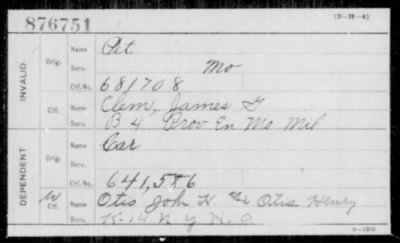 876751
(3-22-4)
INVALID
Orig. Name Pet
Serv. Mo
Ctf. No. 681708
Ctf. Name Clem, James G
Serv. B 4 Prov En Mo Mil
DEPENDENT
Orig. Name Car
Serv.
Ctf. No. 641,586
W Ctf. Name Otis John H. Otis Henry
Serv. K 14 N.Y. H. A